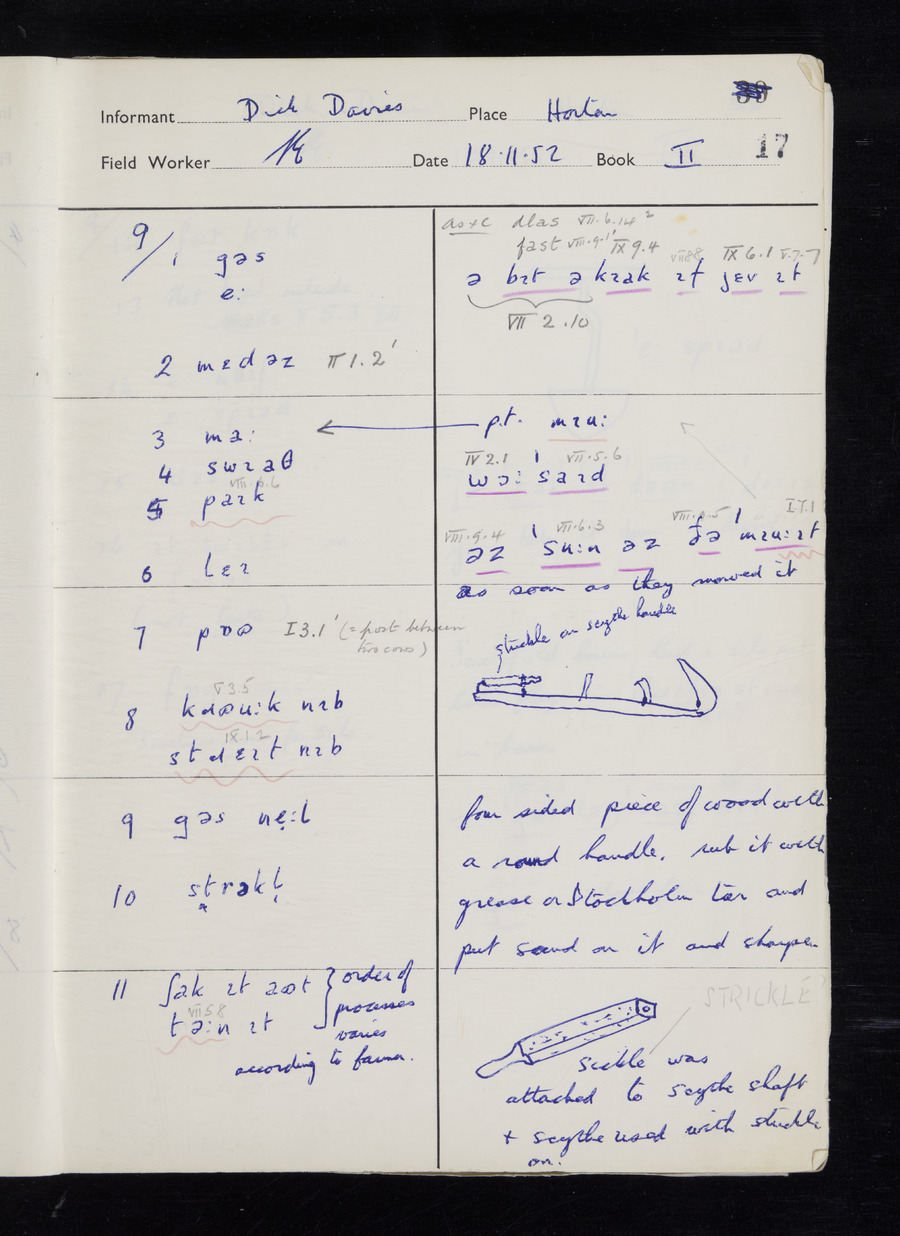 Informant Dick Davies Place Horton
17
Field Worker Date 18.11.52 Book II
9/1 gəs
e:
2 mɛdəz II 1.2'
3 ma:
4 swɪəθ
VIII.6.6
5 paɪk
6 lɛɪ
7 pɒʊ I 3.1' (= post between
two cows)
V 3.5
8 nɪb
IX.1.2
nɪb
9 gəs nẹ:l
10 strəkl̩
11 ʃak ɪt aʊt } order of
VII 5 8
tə:n ɪt processes
varies
according to farmer.
as & c VII.6.14²
fast VIII.9.1' IX 9.4 IX 6.1 V.7.7
ə bɪt ə kɹak ɪf jɛv ɪt
VII 2.10
p.t. mɪu:
IV 2.1 VII.5.6
wɔ: saɪd
VIII.9.4 VII.6.3 I.7.1
əz 'su:n əz ðə 'mɪu:ɪt
as soon as they mowed it
stuckle on scythe handle
four sided piece of wood with
a round handle. rub it with
grease or Stockholm tar and
put sand on it and sharpen
STRICKLE?
was
attached to scythe shaft
+ scythe used with stuckle
on.